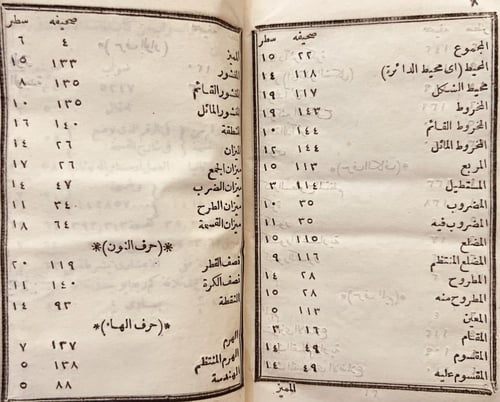 ٨
صحيفه سطر
المجموع ٢٢ ١٥
المحيط (اى محيط الدائرة) ١١٨ ١٤
محيط الشكل ١١٧ ١٩
المخروط ١٤٣ ١٩
المخروط القائم ١٤٤ ١٠
المخروط المائل ١٤٤ ١٢
المربع ١١٣ ١٥
المستطيل ١١٤ ٣
المضروب ٣٥ ١٠
المضروب فيه ٣٥ ١١
المضلع ١١٥ ١٥
المضلع المنتظم ١١٦ ٩
المطروح ٢٨ ١٤
المطروح منه ٢٨ ١٥
المعين ١١٣ ١٥
المقام ١١٦ ٣
المقسوم ٤٩ ١٤
المقسوم عليه ٤٩ ١٤
المميز
صحيفه سطر
المميز ٤ ٦
المنشور ١٣٣ ١٥
المنشور القائم ١٣٥ ٨
المنشور المائل ١٣٥ ١٠
المنطقة ١٤٠ ١٦
الميزان ٢٦ ١٤
ميزان الجمع ٢٦ ١٧
ميزان الضرب ٤٧ ١٤
ميزان الطرح ٣٤٠ ١١
ميزان القسمة ٦٤ ١٨
*(حرف النون)*
نصف القطر ١١٩ ٢٠
نصف الكرة ١٤٠ ١١
النقطة ٩٣ ١٤
*(حرف الهاء)*
الهرم ١٣٧ ٧
الهرم المنتظم ١٣٨ ٥
الهندسة ٨٨ ٥